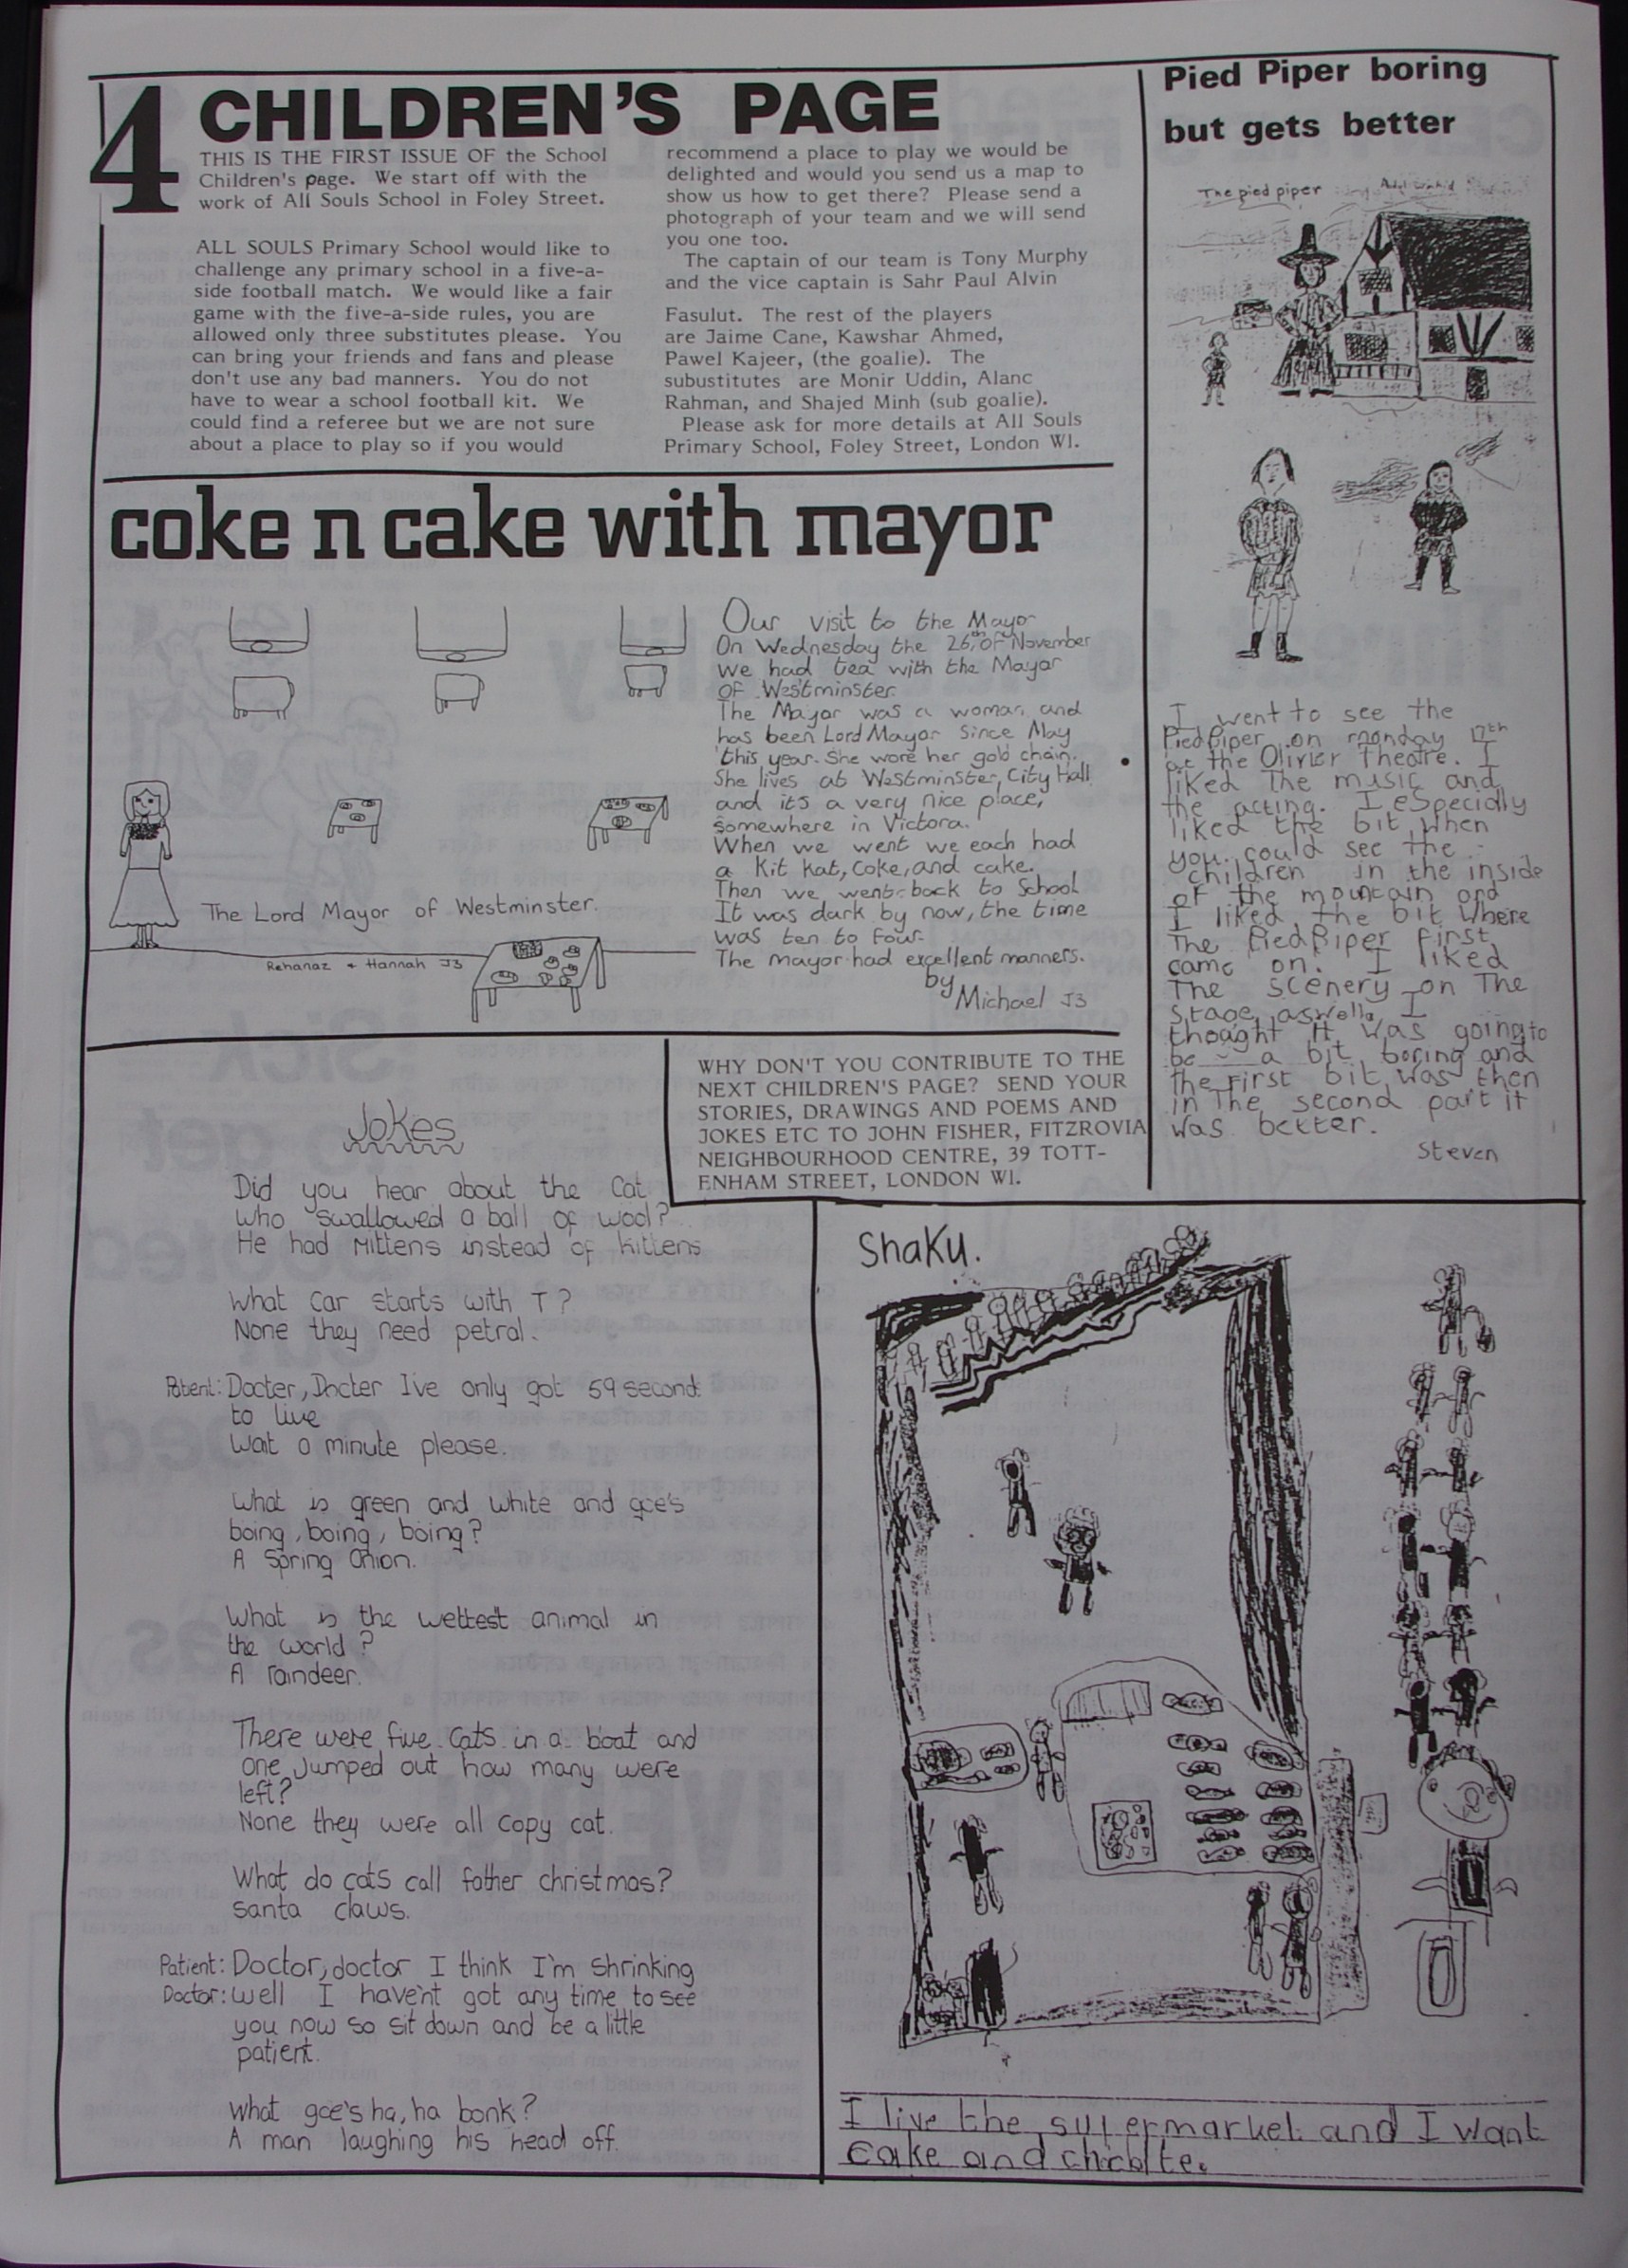 4
CHILDREN'S PAGE
THIS IS THE FIRST ISSUE OF the School
Children's page. We start off with the
work of All Souls School in Foley Street.
ALL SOULS Primary School would like to
challenge any primary school in a five-a-
side football match. We would like a fair
game with the five-a-side rules, you are
allowed only three substitutes please. You
can bring your friends and fans and please
don't use any bad manners. You do not
have to wear a school football kit. We
could find a referee but we are not sure
about a place to play so if you would
recommend a place to play we would be
delighted and would you send us a map to
show us how to get there? Please send a
photograph of your team and we will send
you one too.
The captain of our team is Tony Murphy
and the vice captain is Sahr Paul Alvin
Fasulut. The rest of the players
are Jaime Cane, Kawshar Ahmed,
Pawel Kajeer, (the goalie). The
subustitutes are Monir Uddin, Alanc
Rahman, and Shajed Minh (sub goalie).
Please ask for more details at All Souls
Primary School, Foley Street, London W1.
coke n cake with mayor
Our visit to the Mayor
On Wednesday the 26th of November
we had tea with the Mayor
of Westminster.
The Mayor was a woman and
has been Lord Mayor since May
this year. She wore her gold chain.
She lives at Westminster, City Hall
and it's a very nice place,
somewhere in Victora.
When we went we each had
a Kit kat, coke, and cake.
Then we went back to School
It was dark by now, the time
was ten to four.
The mayor had excellent manners.
by
Michael J3
The Lord Mayor of Westminster.
Rehanaz + Hannah J3
Pied Piper boring
but gets better
The pied piper
I went to see the
Pied Piper on monday 17th
at the Olivier Theatre. I
liked The music and
the acting. I especially
liked the bit when
you could see the
children in the inside
of the mountain and
I liked the bit where
The PiedPiper first
came on. I liked
The scenery on The
stage aswell. I
thought it was going to
be a bit boring and
the First bit was then
in The second part it
was better.
Steven
WHY DON'T YOU CONTRIBUTE TO THE
NEXT CHILDREN'S PAGE? SEND YOUR
STORIES, DRAWINGS AND POEMS AND
JOKES ETC TO JOHN FISHER, FITZROVIA
NEIGHBOURHOOD CENTRE, 39 TOTT-
ENHAM STREET, LONDON W1.
Jokes
Did you hear about the Cat
who swallowed a ball of wool?
He had Mittens instead of kittens
What car starts with T?
None they need petral.
Patient: Docter, Docter I've only got 59 second
to live
Wait a minute please.
What is green and white and goe's
boing, boing, boing?
A Spring Onion.
What is the wettest animal in
the world?
A raindeer.
There were five cats in a boat and
one jumped out how many were
left?
None they were all copy cat.
What do cats call father christmas?
santa claws.
Patient: Doctor, doctor I think I'm shrinking
Doctor: well I haven't got any time to see
you now so sit down and be a little
patient.
What goe's ha, ha bonk?
A man laughing his head off.
Shaku.
I live the supermarket and I want
cake and chicolte.